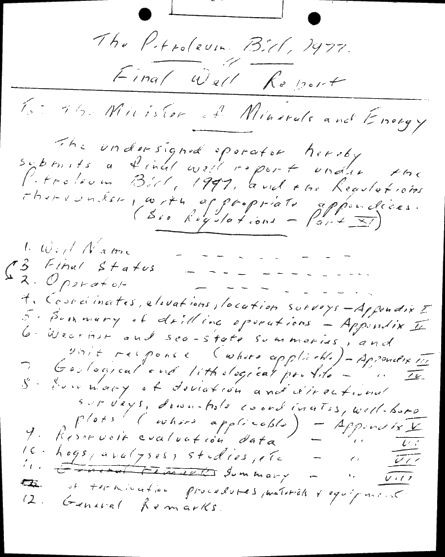 The Petroleum Bill, 1977.
Final Well Report
To: The Minister of Minerals and Energy
The undersigned operator hereby
submits a final well report under the
Petroleum Bill, 1977, and the Regulations
thereunder, with appropriate appendices.
(See Regulations - Part XI)
1. Well Name - - - - - - - - -
3 Final Status - - - - - - - - -
2. Operator - - - - - - - - -
4. Coordinates, elevations, location surveys - Appendix I
5. Summary of drilling operations - Appendix II
6. Weather and sea-state summaries, and
unit response (where applicable) - Appendix III
7. Geological and lithological profile - " IV
8. Summary of deviation and directional
surveys, down-hole coordinates, well-bore
plots (where applicable) - Appendix V
9. Reservoir evaluation data - " VI
10. Logs, analyses, studies, etc - " VII
11. General Remarks Summary - " VIII
of termination procedures, materials & equipment
12. General Remarks.